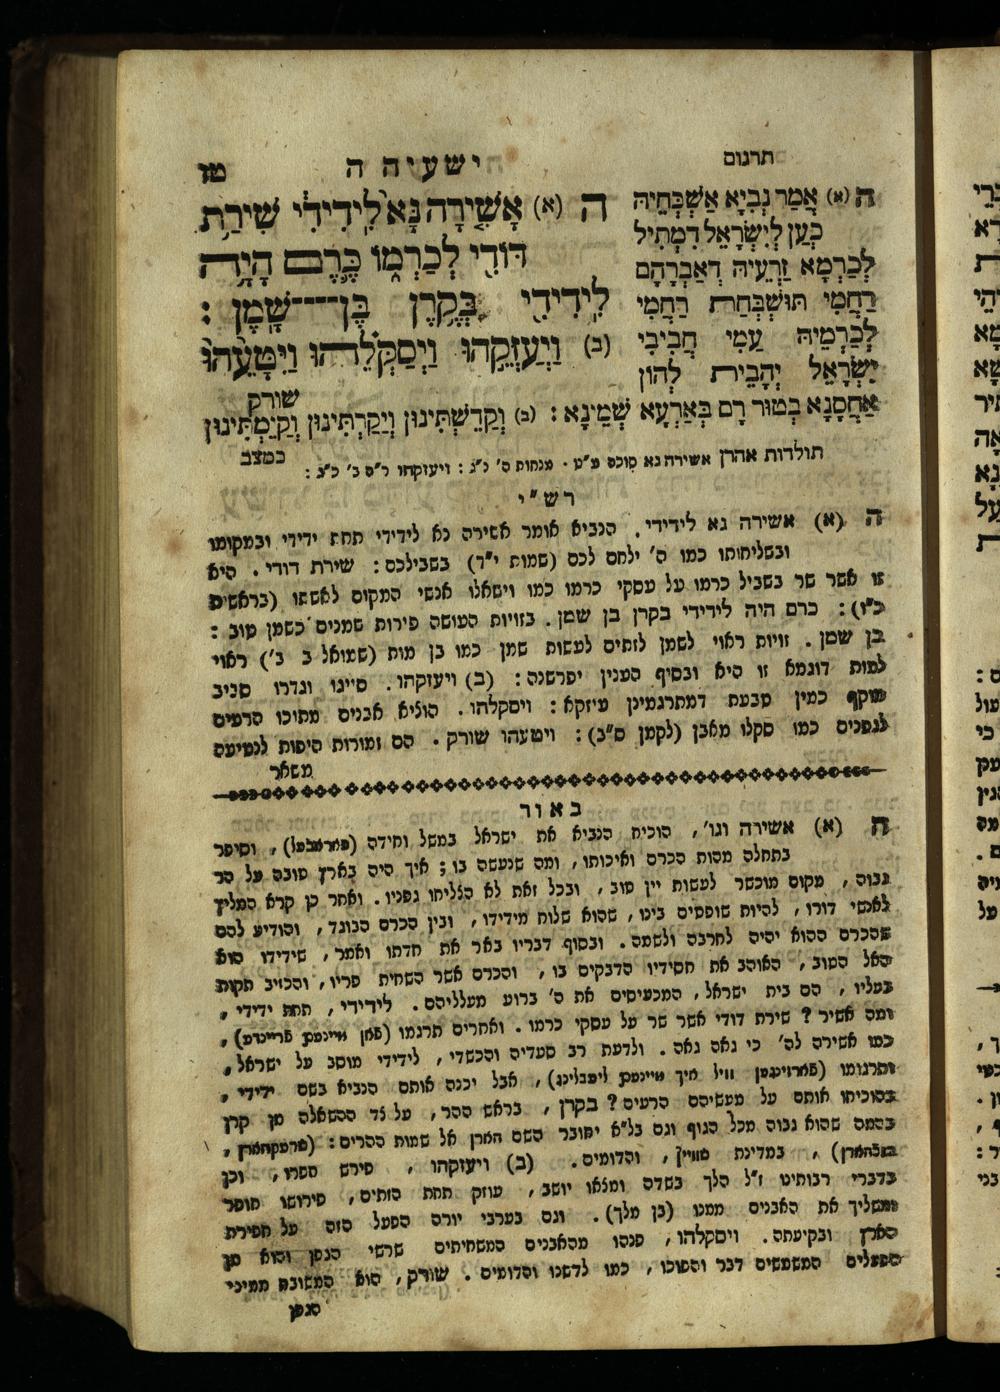 תרגום
ישעיה ה
טו
ה (א) אֲמַר נְבִיָא אֲשַׁבְּחֵיהּ
כְּעַן לְיִשְׂרָאֵל דִמְתִיל
לְכַרְמָא זַרְעֵיהּ דְאַבְרָהָם
רַחֲמִי תּוּשְׁבְּחַת רַחֲמִי
לְכַרְמֵיהּ עַמִי חֲבִיבִי
יִשְׂרָאֵל יְהָבִית לְהוֹן
אַחֲסָנָא בְטוּר רָם בְּאַרְעָא שְׁמֵינָא : (ב) וְקַדֵשְׁתִּינוּן וְיַקַרְתִּינוּן וְקַיֵמְתִּינוּן
ה (א) אָשִׁירָה נָּא לִידִידִי שִׁירַת
דּוֹדִי לְכַרְמוֹ כֶּרֶם הָיָה
לִידִידִי בְּקֶרֶן בֶּן־שָׁמֶן :
(ב) וַיְעַזְּקֵהוּ וַיְסַקְּלֵהוּ וַיִּטָּעֵהוּ
שורק
תולדות אהרן אשירה נא סוכה מ"ט . מנחות ה' נ"ג : ויעזקהו ר"ה ב' כ"ג :
כמצב
רש"י
ה (א) אשירה נא לידידי . הנביא אומר אשירה נא לידידי תחת ידידי ובמקומו
ובשליחותו כמו ה' ילחם לכם (שמות י"ד) בשבילכם : שירת דודי . היא
זו אשר שר בשביל כרמו על עסקי כרמו כמו וישאלו אנשי המקום לאשתו (בראשית
כ"ו) : כרם היה לידידי בקרן בן שמן . בזויות העושה פירות שמנים כשמן טוב :
בן שמן . זויות ראוי לשמן לזתים לעשות שמן כמו בן מות (שמואל ב ב') ראוי
למות דוגמא זו היא ובסיף הענין יפרשנה : (ב) ויעזקהו . סייגו וגדרו סביב
מוקף כמין טבעת דמתרגמינן עיזקא : ויסקלהו . הוציא אבנים מתוכו הרעים
לגפנים כמו סקלו מאבן (לקמן ס"ב) : ויטעהו שורק . הם זמורות היפות לנטיעה
משאר
באור
ה (א) אשירה וגו' , הוכיח הנביא את ישראל במשל וחידה (פאראבעל) , וסיפר
בתחלה מהות הכרם ואיכותו , ומה שנעשה בו ; איך היה בארץ טובה על הר
גבוה , מקום מוכשר לעשות יין טוב , ובכל זאת לא הצליחו גפניו . ואחר כן קרא המליץ
לאנשי דורו , להיות שופטים בינו , שהוא שלוח מידידו , ובין הכרם הבוגד , והודיע להם
שהכרם ההוא יהיה לחרבה ולשמה . ובסוף דבריו באר את חדתו ואמר , שידידו הוא
האל הטוב , האוהב את חסידיו הדבקים בו , והכרם אשר השחית פריו , והכזיב תקות
בעליו , הם בית ישראל , המכעיסים את ה' ברוע מעלליהם . לידידי , תחת ידידי ,
ומה אשיר ? שירת דודי אשר שר על עסקי כרמו . ואחרים תרגמו (פאן מיינעם פריינדע) ,
כמו אשירה לה' כי גאה גאה . ולדעת רב סעדיה והכשדי , לידידי מוסב על ישראל ,
ותרגומו (פארזינגען וויל איך מיינעם ליבלינג) , אבל יכנה אותם הנביא בשם ידידי ,
בהוכיחו אותם על מעשיהם הרעים ? בקרן , בראש ההר , על צד ההשאלה מן קרן
בהמה שהוא גבוה מכל הגוף וגם בל"א יחובר השם הארן אל שמות ההרים :
במדינת שווייץ , והדומים . (ב) ויעזקהו , פירש חפרו , וכן
בדברי רבותינו ז"ל הלך בשדה ומצאו יושב , עוזק תחת הזתים , פירושו חופר
ומשליך את האבנים ממנו (בן מלך) . וגם בערבי יורה הפעל הזה על חפירת
הארץ ובקיעתה . ויסקלהו , פנהו מהאבנים המשחיתים שרשי הגפן והוא מן
הפעלים המשמשים דבר והפוכו , כמו לדשנו והדומים . שורק , הוא המשובח ממיני
הגפן